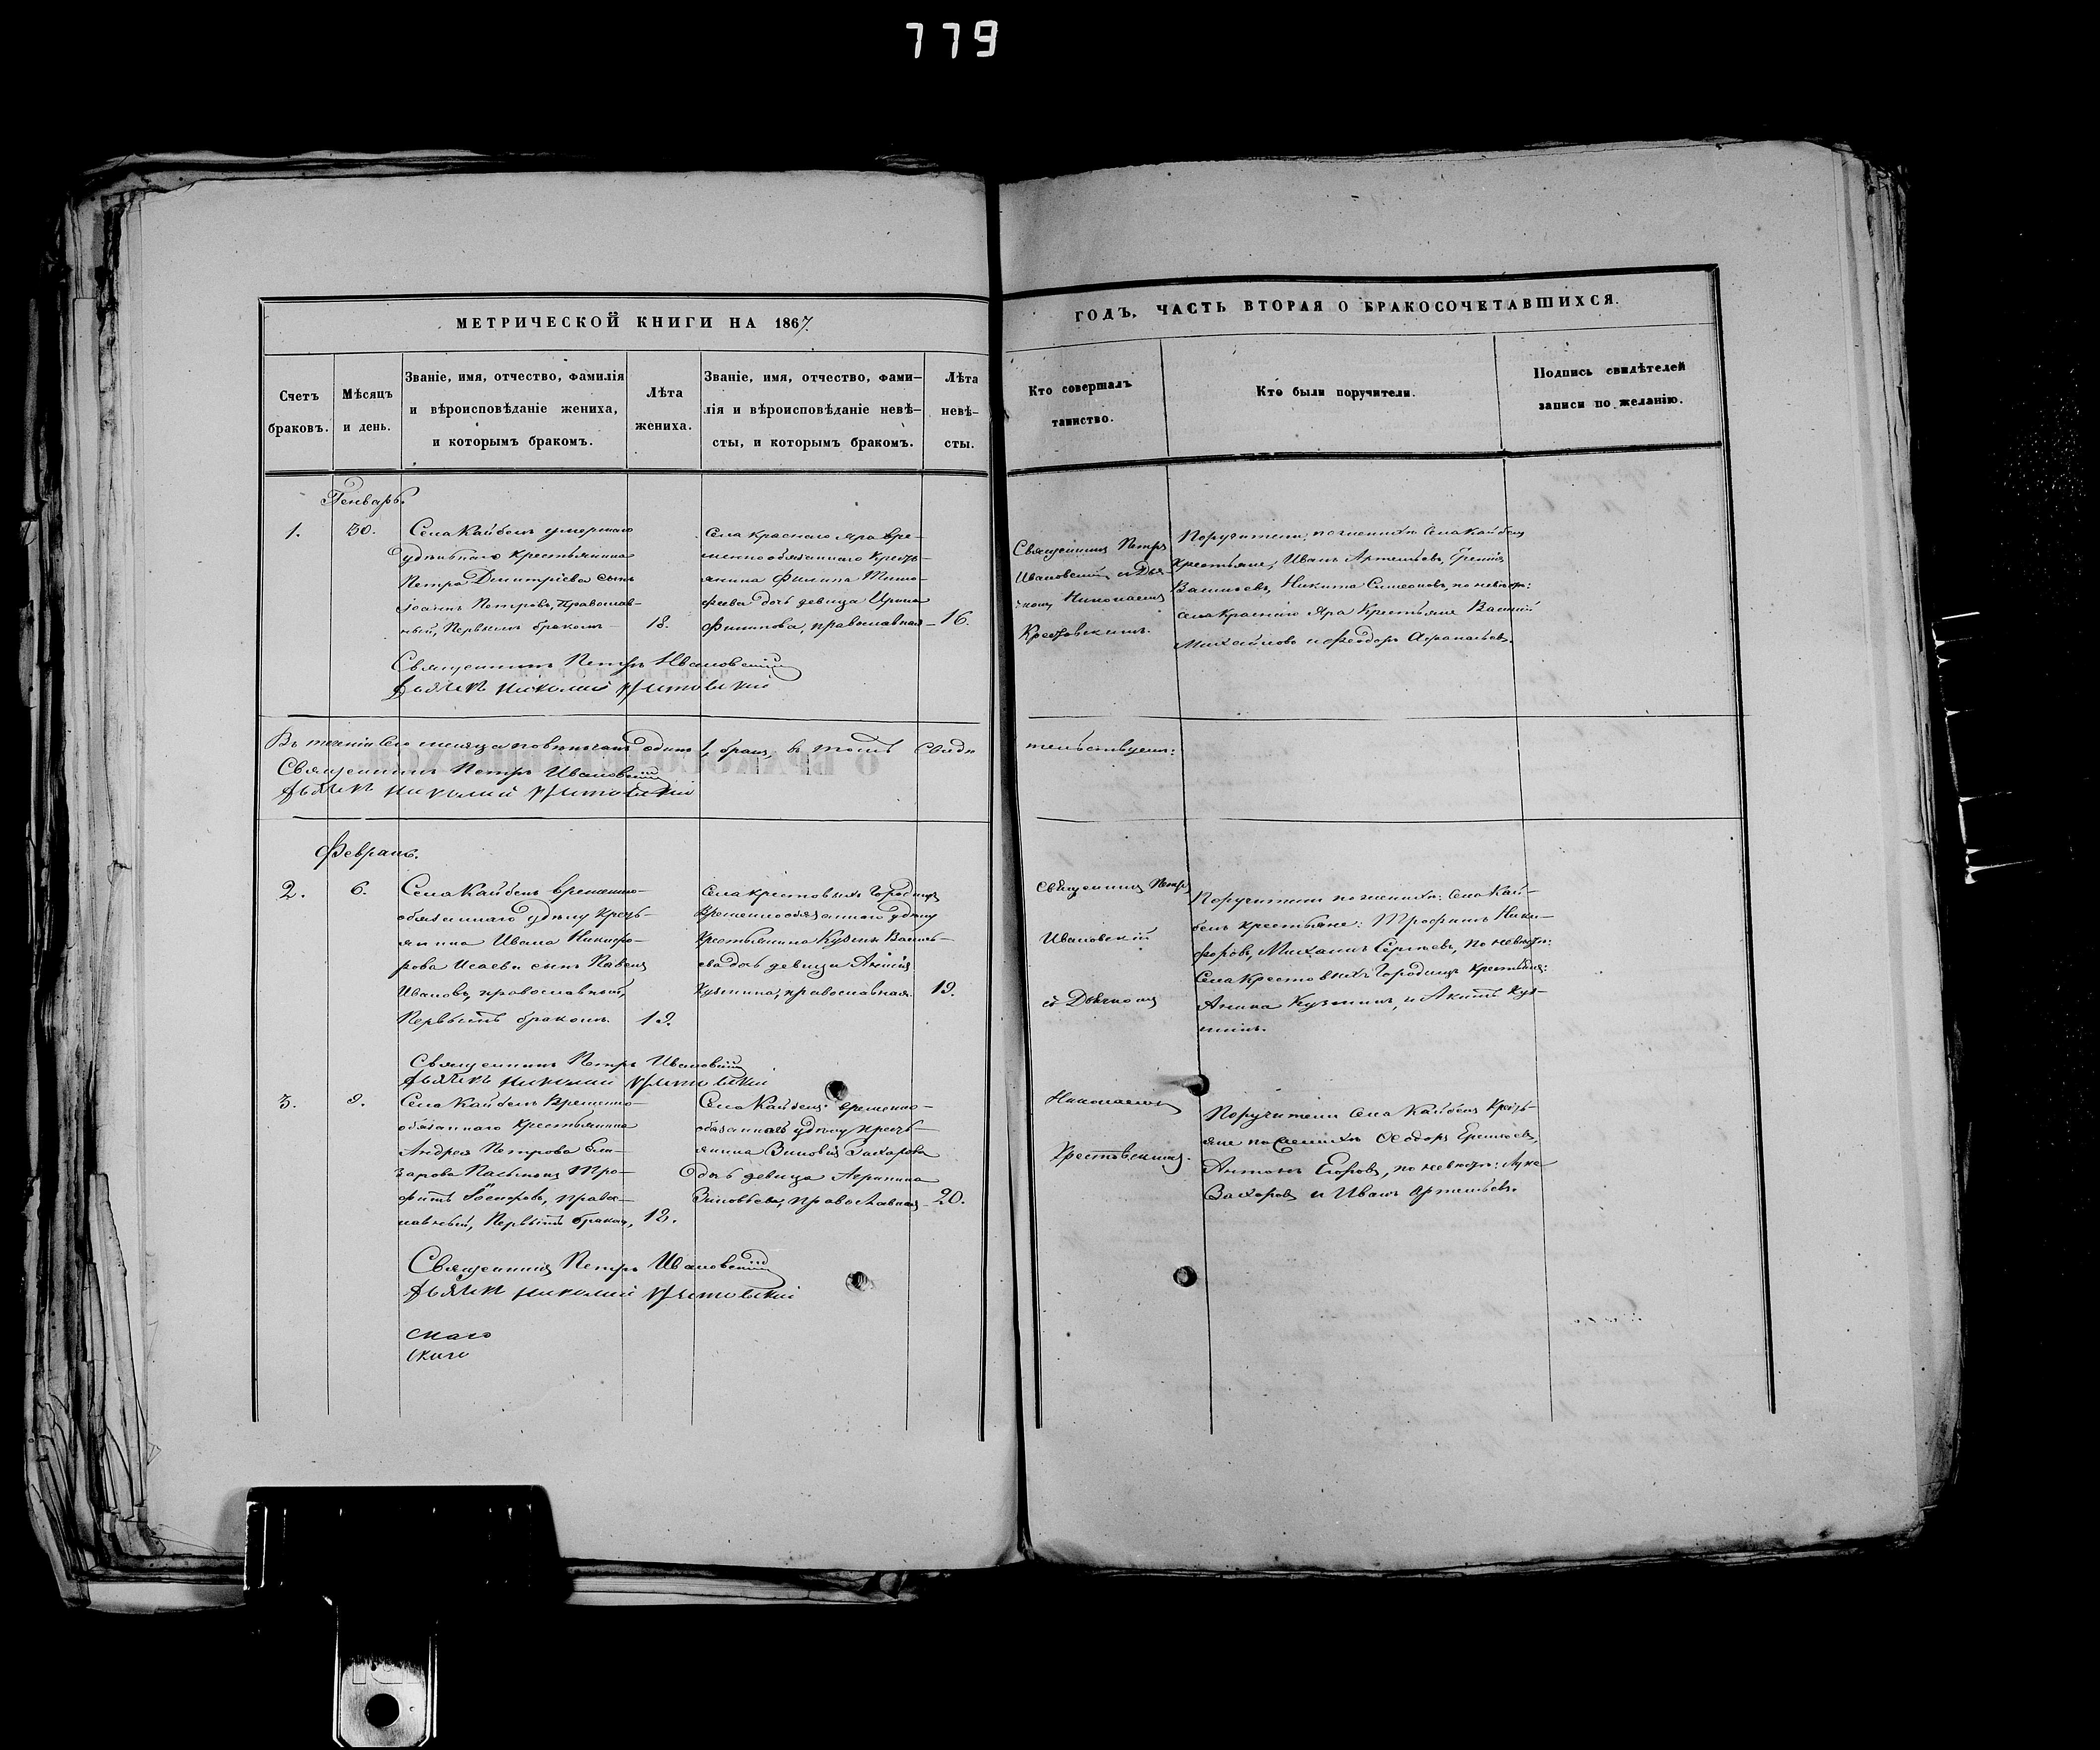 779
МЕТРИЧЕСКОЙ КНИГИ НА 1867
ГОДЪ, ЧАСТЬ ВТОРАЯ О БРАКОСОЧЕТАВШИХСЯ.
Счетъ
браковъ.
Мѣсяцъ
и день.
Званіе, имя, отчество, фамилія
и вѣроисповѣданіе жениха,
и которымъ бракомъ.
Лѣта
жениха.
Званіе, имя, отчество, фами-
лія и вѣроисповѣданіе невѣ-
сты, и которымъ бракомъ.
Лѣта
невѣ-
сты.
Кто совершалъ
таинство.
Кто были поручители.
Подпись свидѣтелей
записи по желанію.
Генварь.
1.
30.
Села Кайбелъ умершаго
удѣльнаго крестьянина
Петра Димитріева сынъ
Іоаннъ Петровъ, Православ-
ный, Первымъ бракомъ
18.
Села краснаго Яра вре-
меннообязаннаго кресть-
янина Филипа Тимо-
феева дочь девица Ирина
Филипова, православная
16.
Священникъ Петръ
Ивановскій съ Дья-
комъ Николаемъ
Крестовскимъ.
Поручители; по женихѣ Села Кайбелъ
крестьяне, Иванъ Артемьевъ,
Васильевъ, Никита Симеоновъ, по невѣстѣ:
села Краснаго Яра Крестьяне Василій
Михайловъ и Феодоръ Афанасьевъ.
Священникъ Петръ Ивановскій
Дьячекъ Николай Крестовскій
Въ теченіи Сего месяца повенчанъ одинъ 1, бракъ, въ томъ Свидѣ
тельствуемъ:
Священникъ Петръ Ивановскій
Дьячекъ Николай Крестовскій
Февраль.
2.
6.
Села Кайбелъ временно-
обязаннаго удѣлу кресть-
янина Ивана Никифо-
рова Исаева сынъ Павелъ
Ивановъ, православный,
Первымъ бракомъ.
19.
Села крестовыхъ Городищъ
Временнообязаннаго удѣлу
Крестьянина Кузмы Василь-
ева дочь девица Анисія
Кузмина, православная.
19.
Священникъ Петръ
Ивановскій
съ Дьячкомъ
Поручители по женихѣ: Села Кай-
белъ крестьяне: Трофимъ Ники-
форовъ, Михаилъ Сергѣевъ, по невѣстѣ:
Села Крестовыхъ Городищъ крестьяне:
Кузминъ, и Акимъ Куз-
минъ.
Священникъ Петръ Ивановскій
Дьячекъ Николай Крестовскій
3.
9.
Села Кайбелъ Временно-
обязаннаго крестьянина
Андрея Петрова Ела-
зарова Тро-
фимъ православ-
лавный, Первымъ бракомъ,
18.
Села Кайбелъ временно-
обязаннаго удѣлу кресть-
янина Зиновія Захарова
дочь девица Агрипина
Зиновьева, православная
20.
Николаемъ
Крестовскимъ.
Поручители Села Кайбелъ Кресть-
яне по женихѣ Ѳеодоръ Ермолаевъ,
Антонъ Егоровъ, по невѣстѣ: Лука
Захаровъ и Иванъ Артемьевъ.
Священникъ Петръ Ивановскій
Дьячекъ Николай Крестовскій